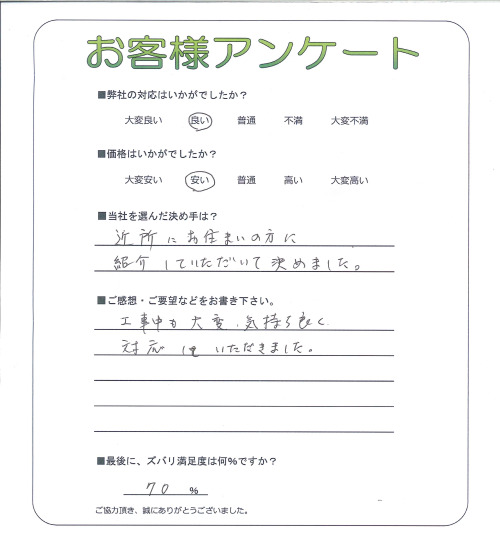 お客様アンケート
■弊社の対応はいかがでしたか？
大変良い 良い 普通 不満 大変不満
■価格はいかがでしたか？
大変安い 安い 普通 高い 大変高い
■当社を選んだ決め手は？
近所にお住まいの方に
紹介していただいて決めました。
■ご感想・ご要望などをお書き下さい。
工事中も大変気持ち良く
対応していただきました。
■最後に、ズバリ満足度は何%ですか？
70 %
ご協力頂き、誠にありがとうございました。